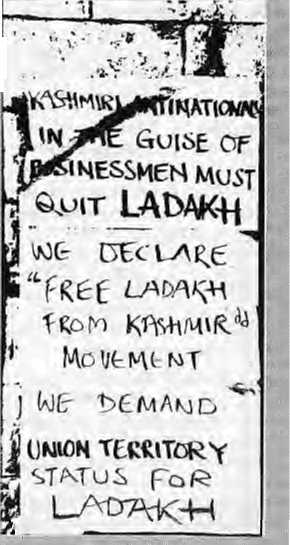 KASHMIRI ANTINATIONALS
IN THE GUISE OF
BUSINESSMEN MUST
QUIT LADAKH
WE DECLARE
"FREE LADAKH
FROM KASHMIR"
MOVEMENT
WE DEMAND
UNION TERRITORY
STATUS FOR
LADAKH